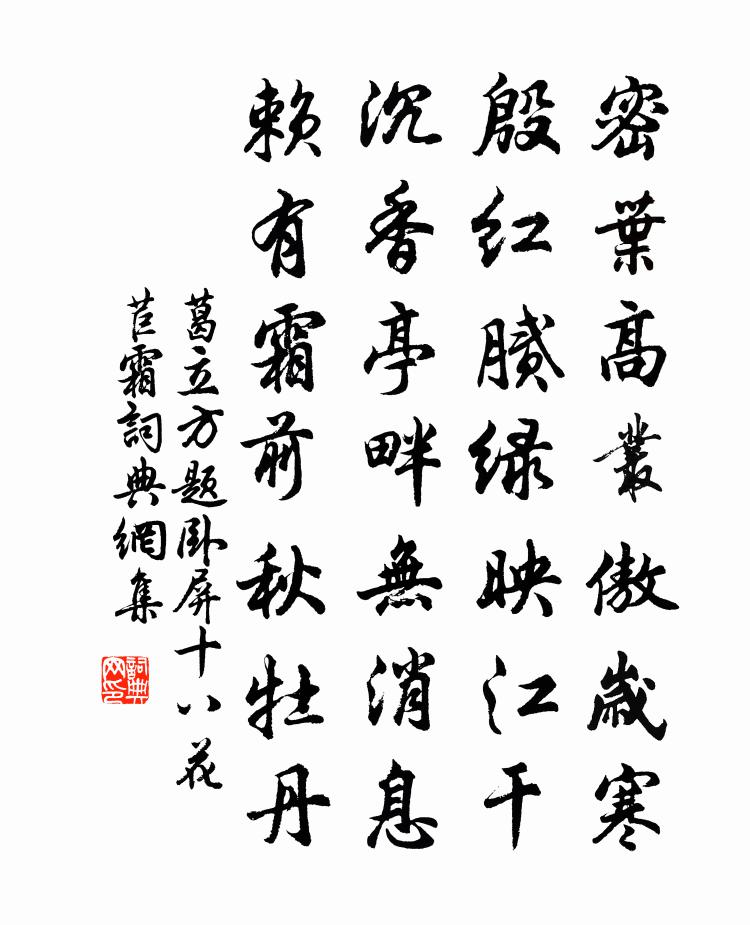 密葉高叢傲歲寒
殷红膩绿映江干
沉香亭畔無消息
赖有霜前秋牡丹
葛立方题卧屏十八花
苣霜詞典網集
詞典
网印